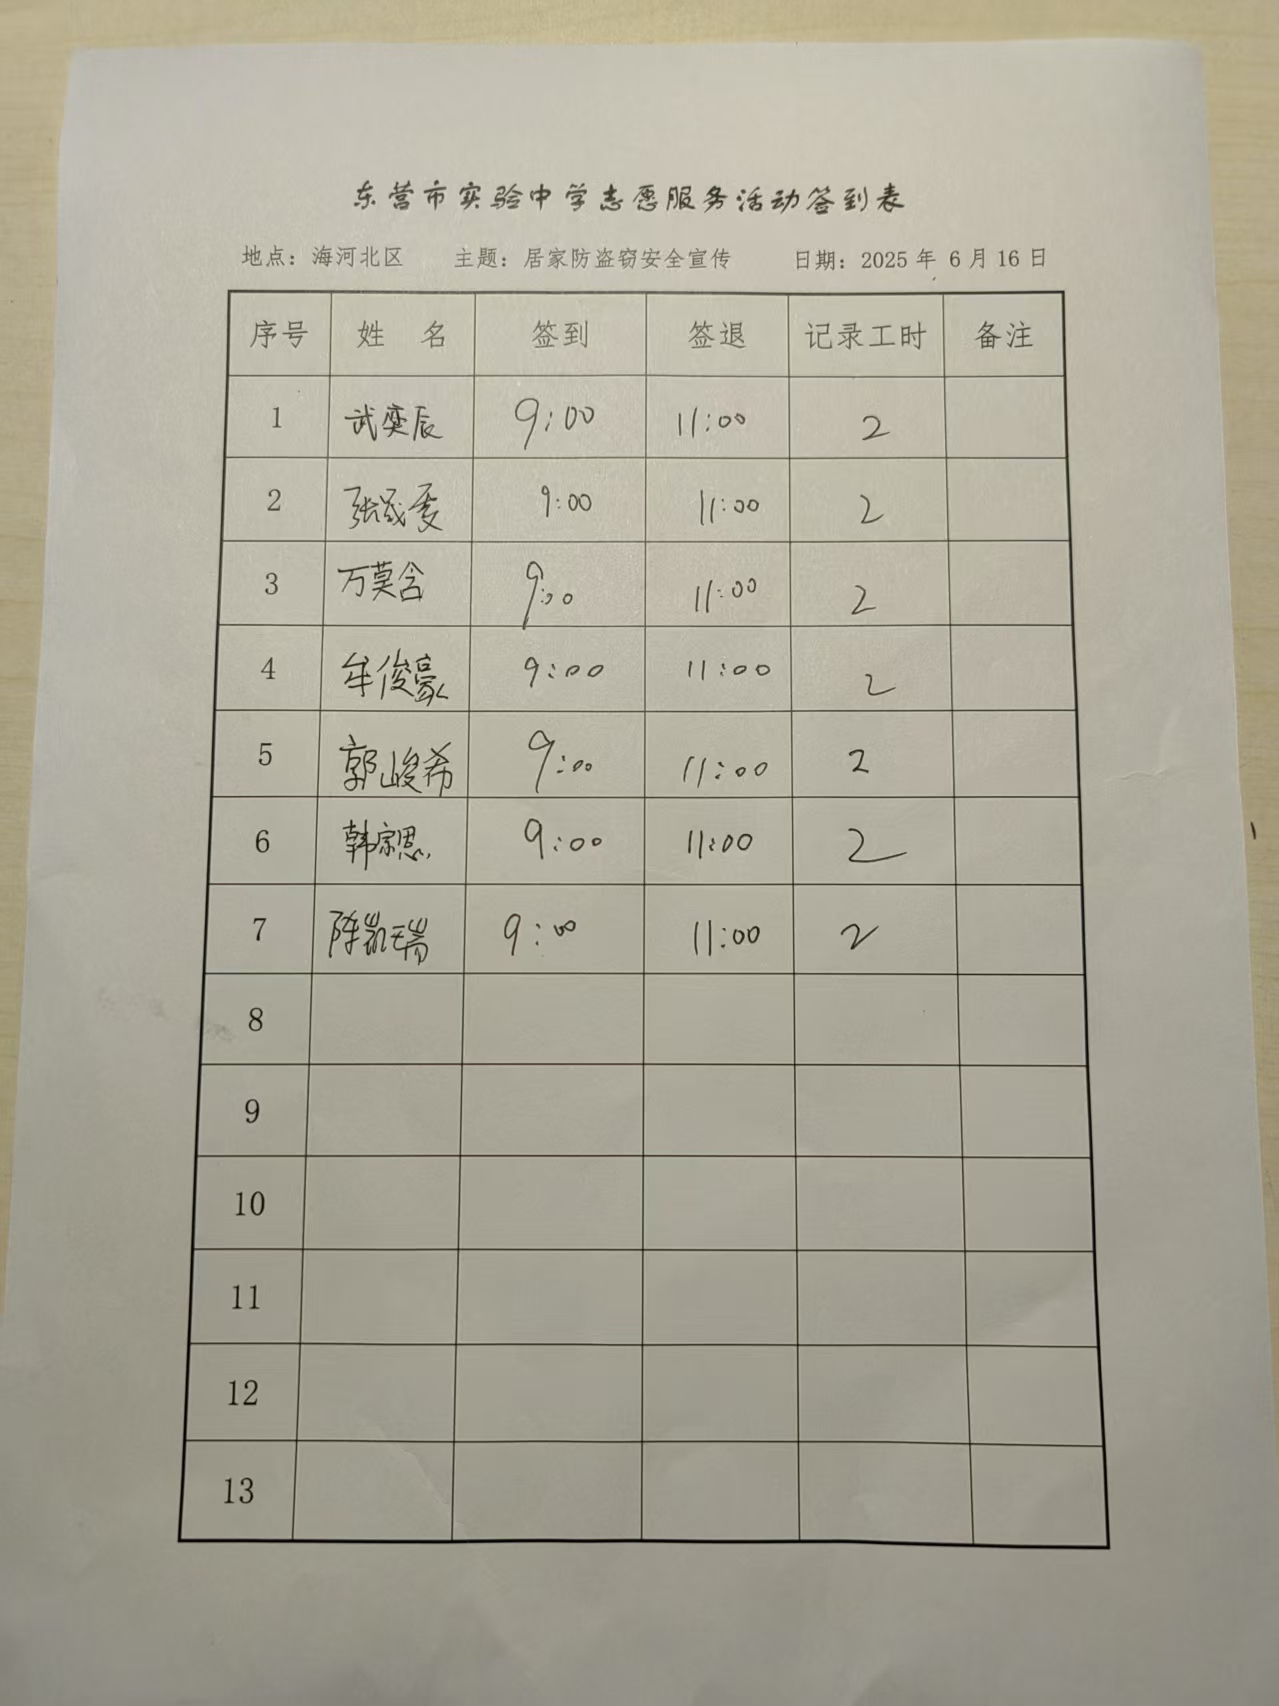 东营市实验中学志愿服务活动签到表
地点：海河北区 主题：居家防盗窃安全宣传 日期：2025 年 6 月 16 日
序号 姓 名 签到 签退 记录工时 备注
1 武奕辰 9:00 11:00 2
2 9:00 11:00 2
3 万莫含 9:00 11:00 2
4 牟俊豪 9:00 11:00 2
5 郭峻希 9:00 11:00 2
6 韩宗恩 9:00 11:00 2
7 陈凯瑞 9:00 11:00 2
8
9
10
11
12
13